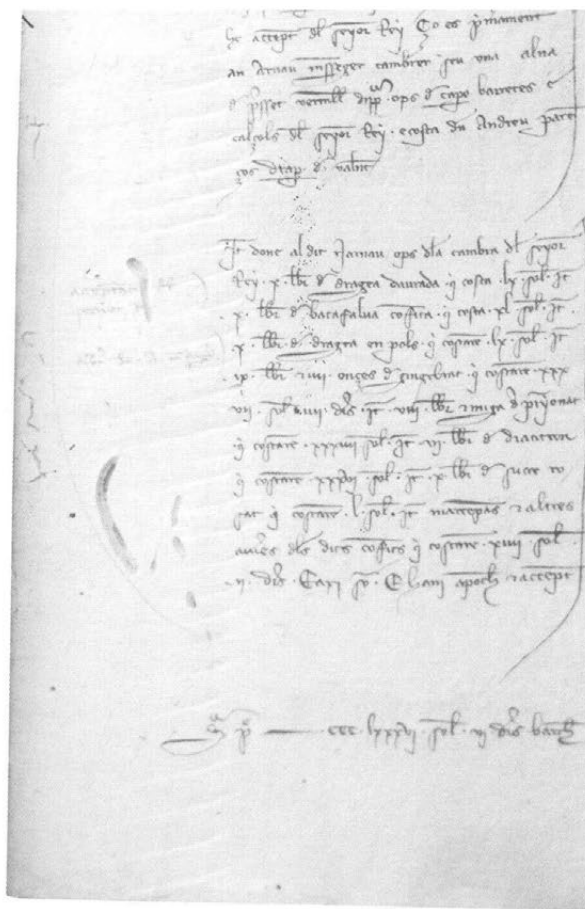 he accept dl seyor Rey Ço es p'mament
an Arnau messeger cambrer seu una alna
d p'sset vermell ops d capo barretes e
calçols dl seyor Rey · e costa dn Andreu
drap d
Jt done al dit Narnau ops dla cambra dl seyor
Rey · x · lbr d dragea daurada q costa · lx · sol · Jt ·
· x · lbr d batafalua cofita · q costa · xl · sol · Jt ·
x · lbr · d · dragea en pols · q costare · lx · sol · Jt
ix · lbr · z iiii · onçes d gingebrat · q costare · xxx
vii · sol · iiii · drs · Jt · viii · lbr z miga d pinyonat
q costare · xxxiiii sol · Jt · vi · lbr d diacitron
q costare · xxxvi · sol · Jt · x · lbr d sucre ro
sat q costare · l · sol · Jt matapas z altres
dls dits cofits q costare · xiiii · sol
· ii · drs · E hani apoch z accept
ccc · lxxxvi · sol · vi drs barch